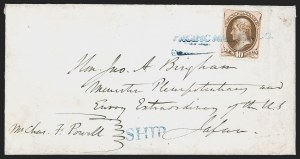 Hon Jno. A Bingham
Minister Plenipotentiary and
Envoy Extraordinary of the U S
Japan.
Mr Chas. F. Powell
SHIP
10